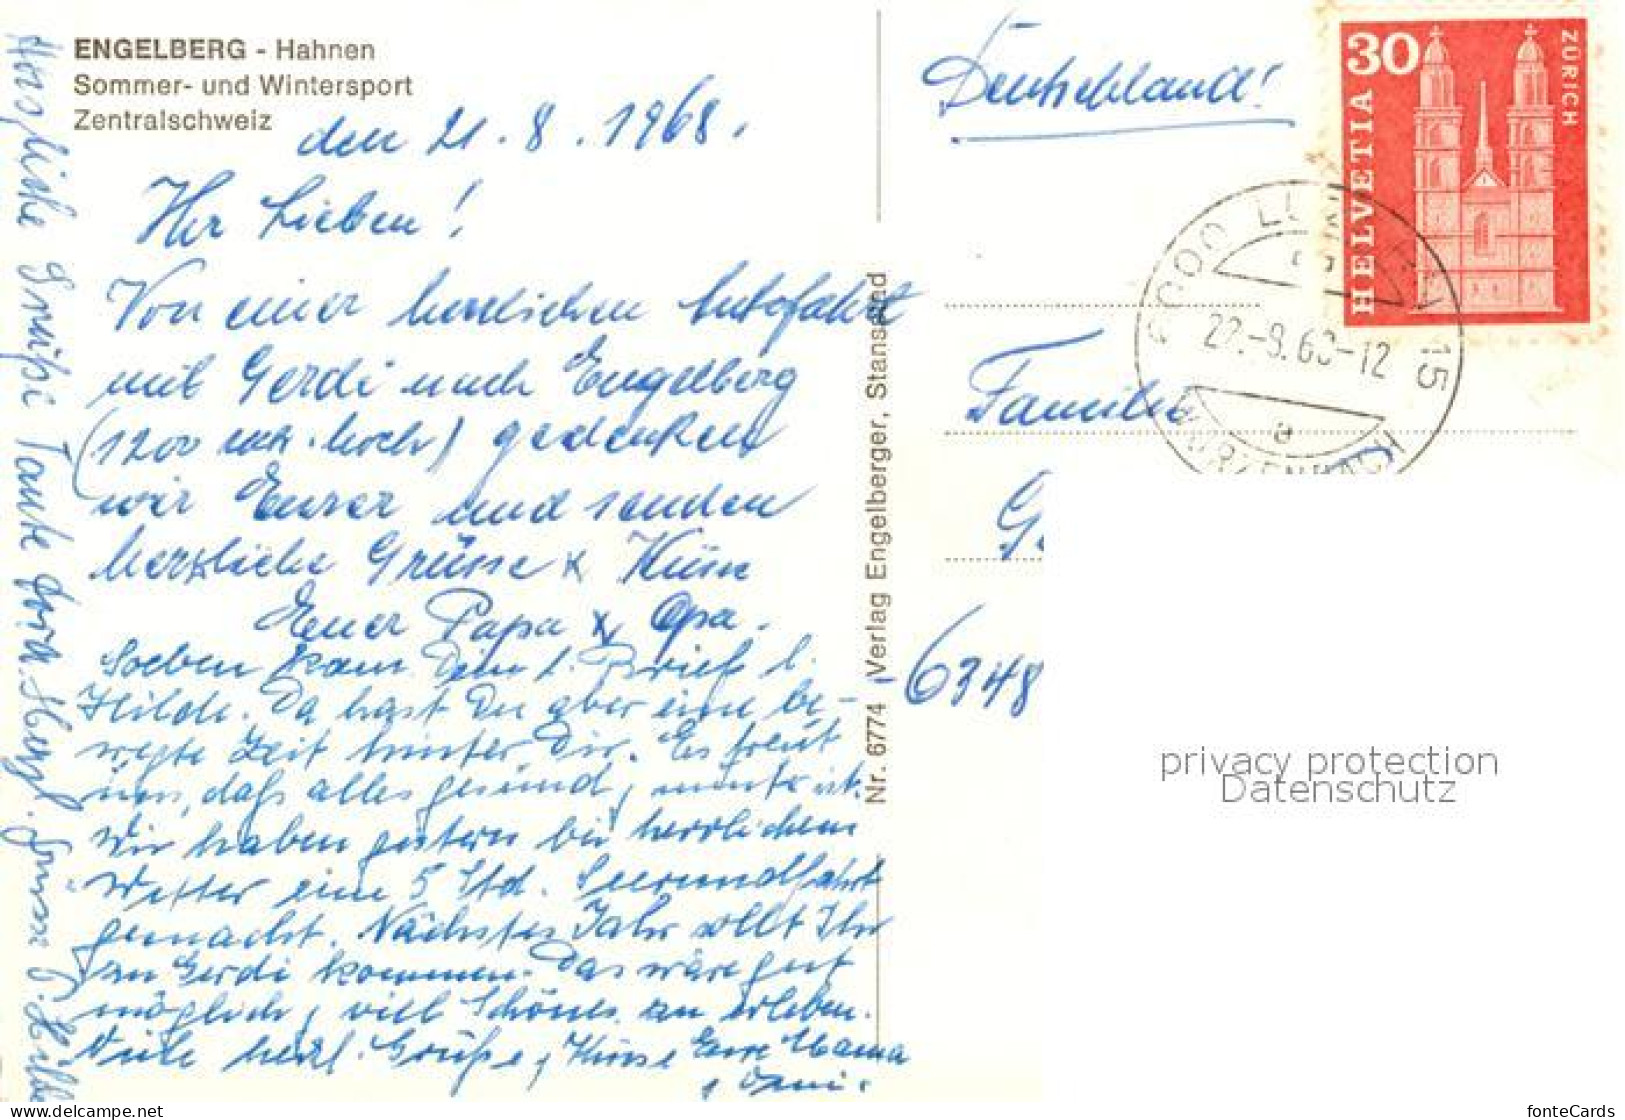 ENGELBERG - Hahnen
Sommer- und Wintersport
Zentralschweiz
den 21.8.1968.
Ihr Lieben!
Von einer herrlichen Autofahrt
mit Gerdi nach Engelberg
(1200 mtr. hoch) gedenken
wir Eurer und senden
herzliche Grüsse & Küsse
Euer Papa & Opa.
Soeben kam Dein l. Brief l.
Hilde. Da hast Du aber eine be-
wegte Zeit hinter Dir. Es freut
uns, daß alles gesund, munter ist.
Wir haben gestern bei herrlichem
Wetter eine 5 Std. Seerundfahrt
gemacht. Nächstes Jahr sollt Ihr
zu Gerdi kommen. Das wäre gut
möglich, viel Schönes zu erleben.
Viele herzl. Grüße, Küsse Eure Mama
, Omi.
Herzliche Grüße Tante Gerda. Herzl. Grüsse T. Hilde
Nr. 6774 Verlag Engelberger, Stansstad
Deutschland!
30
HELVETIA
ZÜRICH
6000 LUZERN 15
22.-8.68-12
a
WÜRZENBACH
Familie
G
6348
privacy protection
Datenschutz
www.delcampe.net
fonteCards